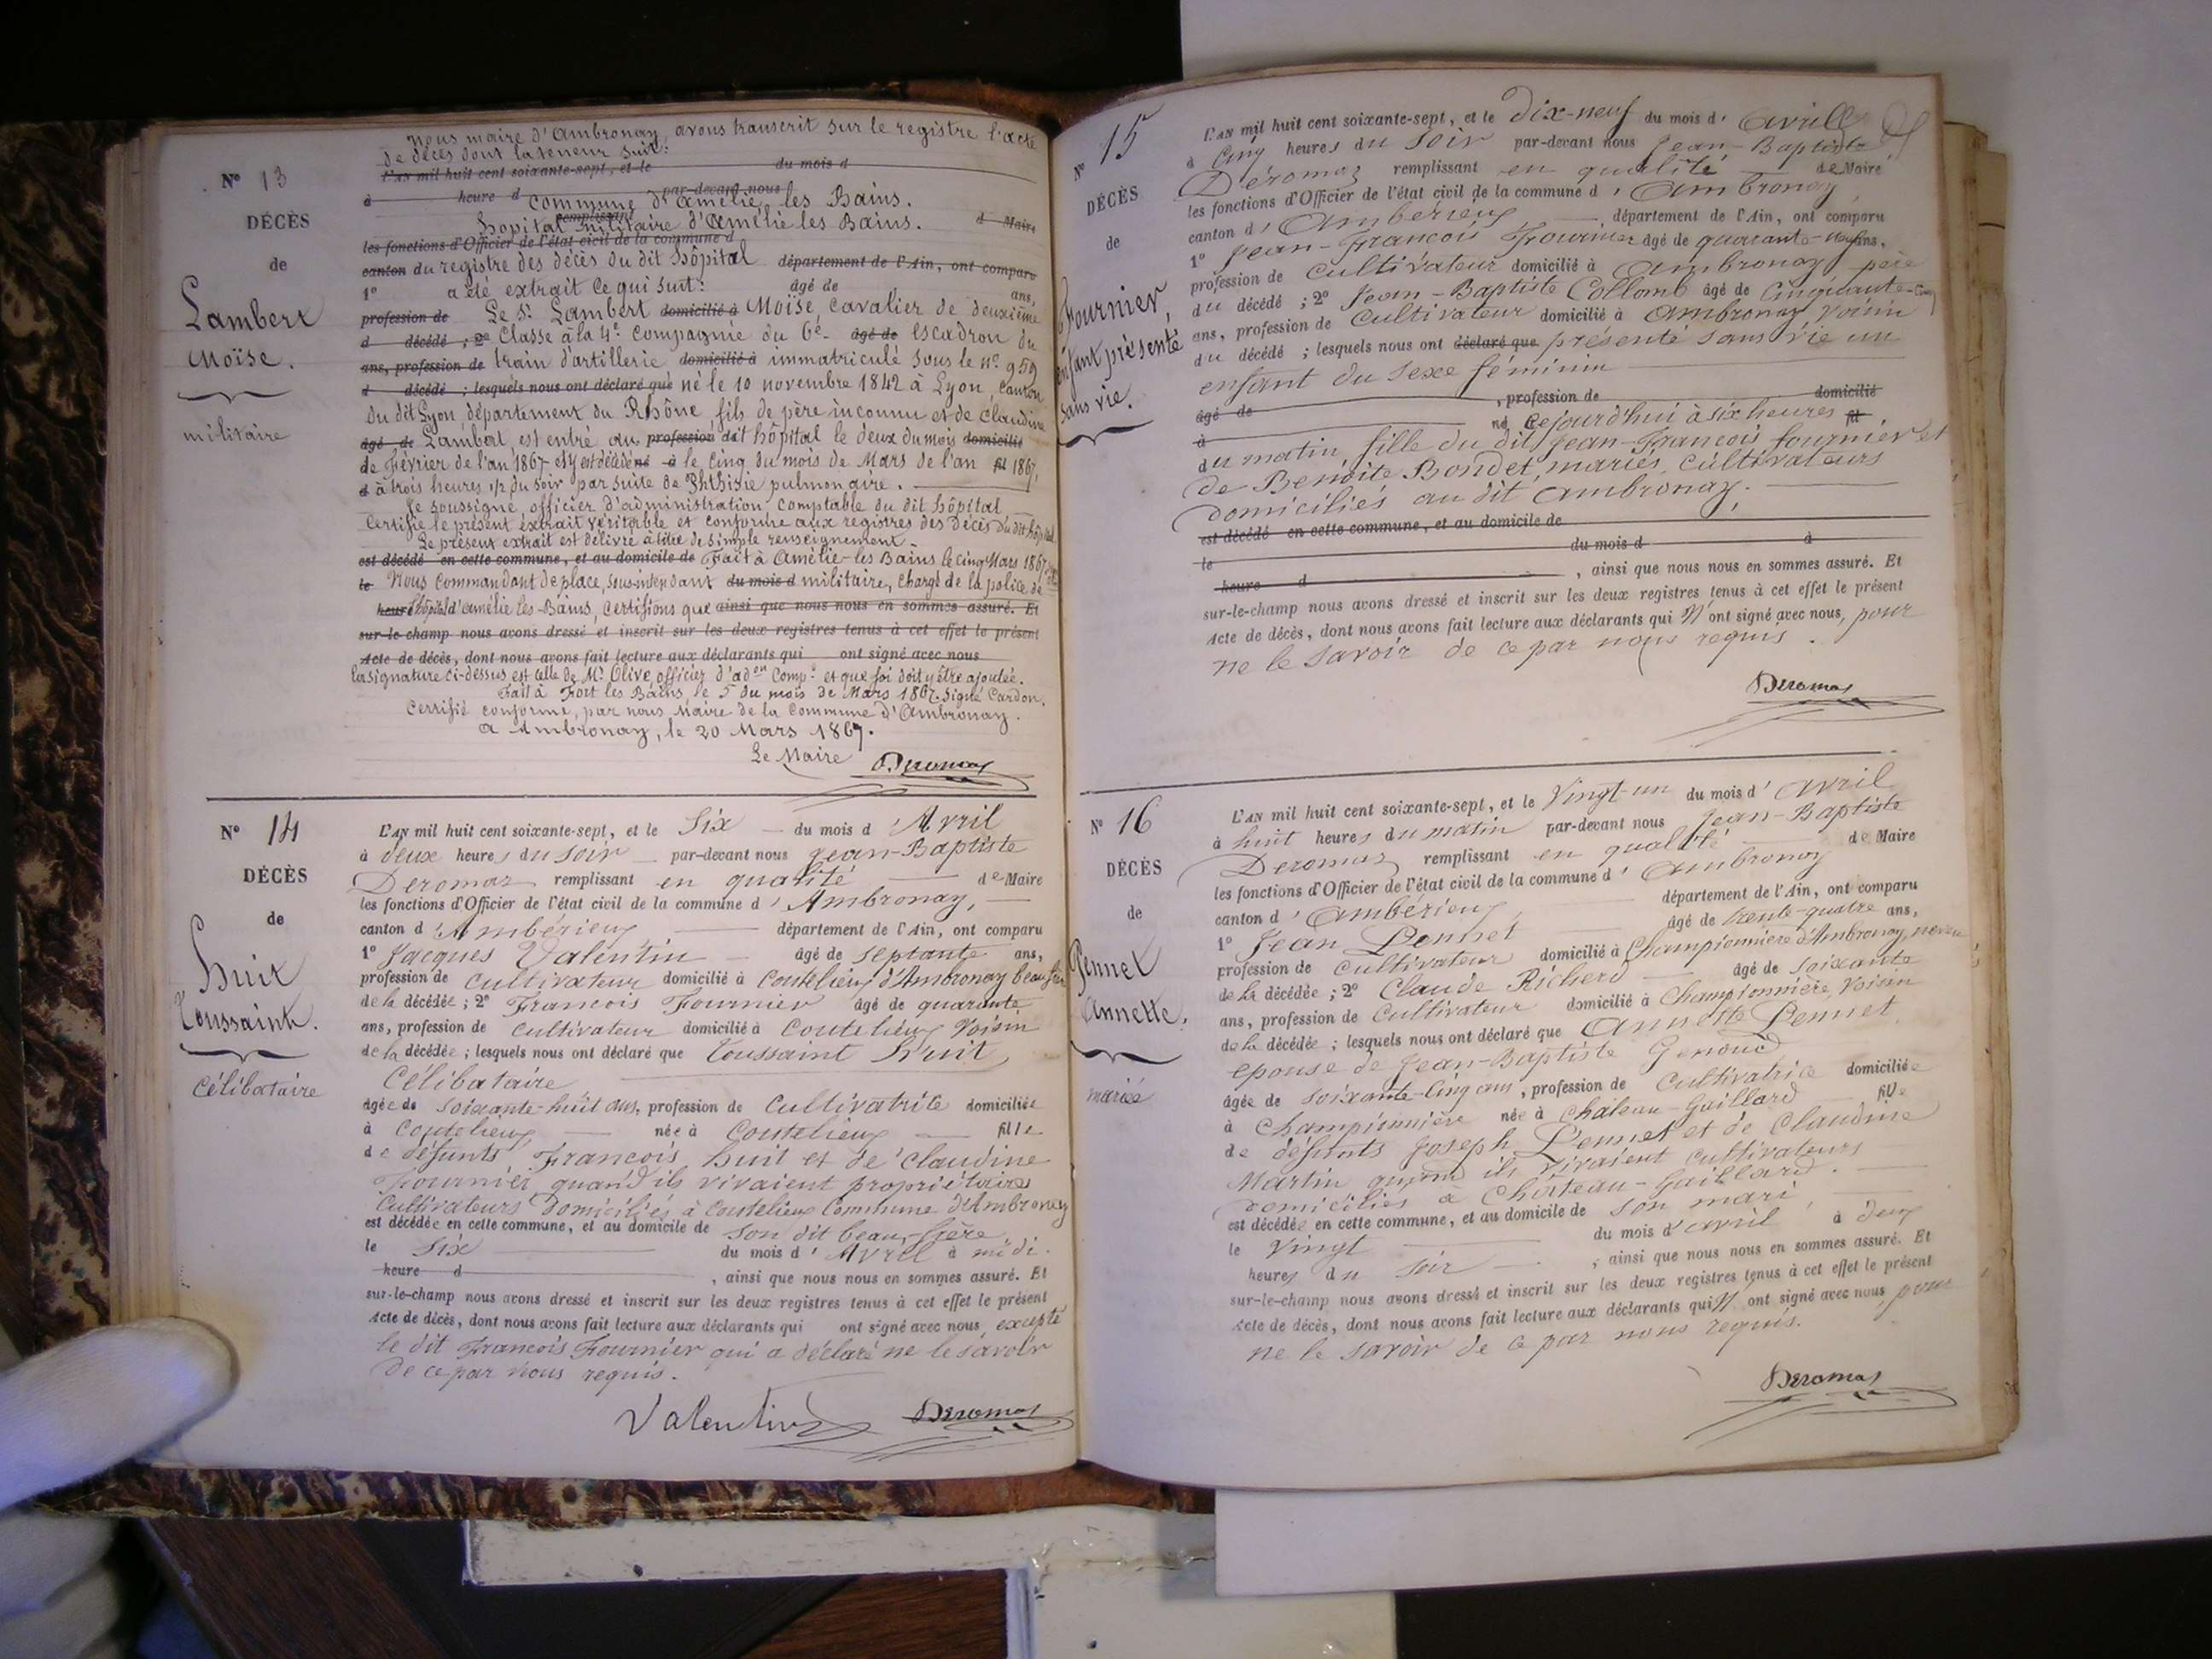 Nous maire d'Ambronay, avons transcrit sur le registre l'acte
de décès dont la teneur suit:
N° 13
L'AN mil huit cent soixante-sept, et le du mois d
à heure d par-devant nous
commune d'Amélie les Bains.
DÉCÈS
remplissant
hopital militaire d'Amélie les Bains. d Maire
les fonctions d'Officier de l'état civil de la commune d
de
canton du registre des décès du dit hôpital département de l'Ain, ont comparu
1° a été extrait ce qui suit: âgé de ans,
Lambert
Moïse.
profession de Le Sr. Lambert domicilié à Moïse, cavalier de deuxième
d décédé ; 2° Classe à la 4e. compagnie du 6e- âgé de escadron du
ans, profession de train d'artillerie, domicilié à immatriculé sous le n° 959
d décédé ; lesquels nous ont déclaré que né le 10 novembre 1842 à Lyon, canton
militaire
du dit Lyon, département du Rhône, fils de père inconnu et de Claudine
âgé de Lambert, est entré au profession dit hôpital le deux du mois domicilié
de Février de l'an 1867 et y est décédé né à le cinq du mois de Mars de l'an fil 1867,
d à trois heures 1/2 du soir par suite de Phthisie pulmonaire.
Je soussigné, officier d'administration, comptable du dit hôpital
Certifie le présent extrait véritable et conforme aux registres des Décès du dit hôpital
Le présent extrait est délivré à titre de simple renseignement.
est décédé en cette commune, et au domicile de Fait à Amélie-les Bains le cinq Mars 1867
le Nous Commandant de place, sous-intendant du mois d militaire, chargé de la police de
heure l'hôpital d'Amélie les-Bains, certifions que ainsi que nous nous en sommes assuré. Et
sur-le-champ nous avons dressé et inscrit sur les deux registres tenus à cet effet le présent
Acte de décès, dont nous avons fait lecture aux déclarants qui ont signé avec nous
la signature ci-dessus est celle de Mr. Olive, officier d'aden Comp. et que foi doit y être ajoutée.
Fait à Fort les Bains, le 5 du mois de Mars 1867. Signé Cardon.
Certifié conforme, par nous Maire de la Commune d'Ambronay.
à Ambronay, le 20 Mars 1867.
Le Maire Deromas
N° 14
DÉCÈS
de
Huit
Toussainte.
Célibataire
L'AN mil huit cent soixante-sept, et le Six du mois d'Avril
à deux heures du soir par-devant nous Jean-Baptiste
Deromas remplissant en qualité de Maire
les fonctions d'Officier de l'état civil de la commune d'Ambronay,
canton d'Ambérieux département de l'Ain, ont comparu
1° Jacques Valentin âgé de septante ans,
profession de cultivateur domicilié à Coutelieux d'Ambronay beau frère
de la décédée ; 2° Francois Fournier âgé de quarante
ans, profession de cultivateur domicilié à Coutelieux voisin
de la décédée ; lesquels nous ont déclaré que Toussaint Huit,
Célibataire
âgée de soixante-huit ans, profession de Cultivatrice domiciliée
à Coutelieux, née à Coutelieux fille
de défunts Francois Huit et de Claudine
Fournier quand ils vivaient propriétaires
Cultivateurs domiciliés à Coutelieux Commune d'Ambronay
est décédée en cette commune, et au domicile de son dit beau-frère
le Six du mois d'Avril à midi.
heure d , ainsi que nous nous en sommes assuré. Et
sur-le-champ nous avons dressé et inscrit sur les deux registres tenus à cet effet le présent
Acte de décès, dont nous avons fait lecture aux déclarants qui ont signé avec nous, excepté
le dit Francois Fournier qui a déclaré ne le savoir
de ce par nous requis.
Valentin Deromas
N° 15
DÉCÈS
de
Fournier,
enfant présenté
sans vie.
L'AN mil huit cent soixante-sept, et le Dix-neuf du mois d'Avril
à Cinq heures du soir par-devant nous Jean-Baptiste
Déromas remplissant en qualité de Maire
les fonctions d'Officier de l'état civil de la commune d'Ambronay
canton d'Ambérieux département de l'Ain, ont comparu
1° Jean-Francois Fournier âgé de quarante-neuf ans,
profession de cultivateur domicilié à Ambronay père
du décédé ; 2° Jean-Baptiste Collomb âgé de Cinquante-cinq
ans, profession de Cultivateur domicilié à Ambronay voisin
du décédé ; lesquels nous ont déclaré que présenté sans vie un
enfant du sexe féminin
âgé de , profession de domicilié
à né Cejourd'hui à six heures fil
du matin, fille du dit Jean-Francois Fournier et
de Benoite Bondet, mariés, cultivateurs
domiciliés au dit Ambronay.
est décédé en cette commune, et au domicile de
le du mois d à
heure d , ainsi que nous nous en sommes assuré. Et
sur-le-champ nous avons dressé et inscrit sur les deux registres tenus à cet effet le présent
Acte de décès, dont nous avons fait lecture aux déclarants qui N'ont signé avec nous, pour
ne le savoir de ce par nous requis.
Deromas
N° 16
DÉCÈS
de
Pennet
Annette.
mariée
L'AN mil huit cent soixante-sept, et le Vingt-un du mois d'Avril
à huit heures du matin par-devant nous Jean-Baptiste
Deromas remplissant en qualité de Maire
les fonctions d'Officier de l'état civil de la commune d'Ambronay
canton d'Ambérieux, département de l'Ain, ont comparu
1° Jean Pennet âgé de trente-quatre ans,
profession de cultivateur domicilié à Championnière d'Ambronay, neveu
de la décédée ; 2° Claude Richerd âgé de soixante
ans, profession de Cultivateur domicilié à Championnière, voisin
de la décédée ; lesquels nous ont déclaré que Annette Pennet,
épouse de Jean-Baptiste Genoud
âgée de soixante-cinq ans, profession de Cultivatrice domiciliée
à Championnière née à Château-Gaillard fille
de défunts Joseph Pennet et de Claudine
Martin quand ils vivaient cultivateurs
domiciliés à Château-Gaillard.
est décédée en cette commune, et au domicile de son mari,
le Vingt du mois d'avril à deux
heures du soir , ainsi que nous nous en sommes assuré. Et
sur-le-champ nous avons dressé et inscrit sur les deux registres tenus à cet effet le présent
Acte de décès, dont nous avons fait lecture aux déclarants qui N'ont signé avec nous, pour
ne le savoir de ce par nous requis.
Deromas